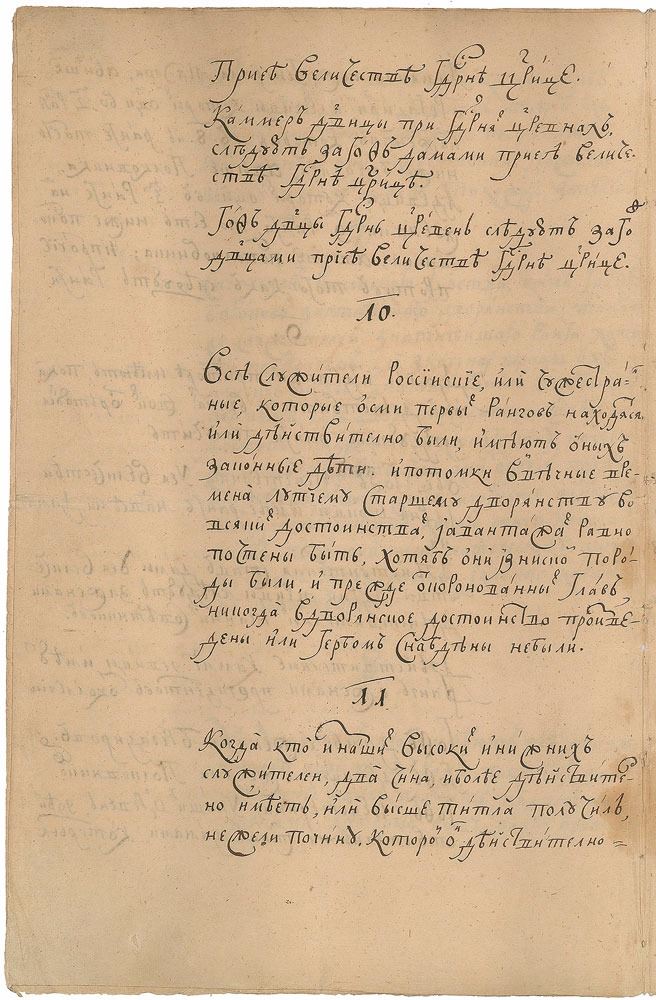 При еѣ величествѣ Гдрнѣ црице.
Каммеръ двицы при Гдрня цревнахъ,
слѣдуютъ за Гофъ дамами при еѣ величе-
ствѣ Гдрнѣ црицѣ.
Гофъ двцы Гдрнь цревень слѣдуютъ за гоф
двцами при еѣ величествѣ Гдрнѣ црице.
10.
Всѣ служители Россиіские, или чужестра-
ные, которые осми первых рангов находятся
или дѣиствително были, имѣютъ оныхъ
законные дѣти, и потомки в вѣчные вре-
мена лутчему старшему дворянству во
всяких достоинствах, i авантажах равно
почтены быть, хотябъ они iз нискои поро-
ды были, и прежде от коронованных главъ,
никогда в дворянское достоинство произве-
дены или гербомъ снабдѣны небыли.
11
Когда кто из наших высоких и нижнихъ
служителеи, два чина, и болѣе дѣиствите-
но имѣетъ, или высше титла получилъ,
нежели по чину, которои он дѣиствително